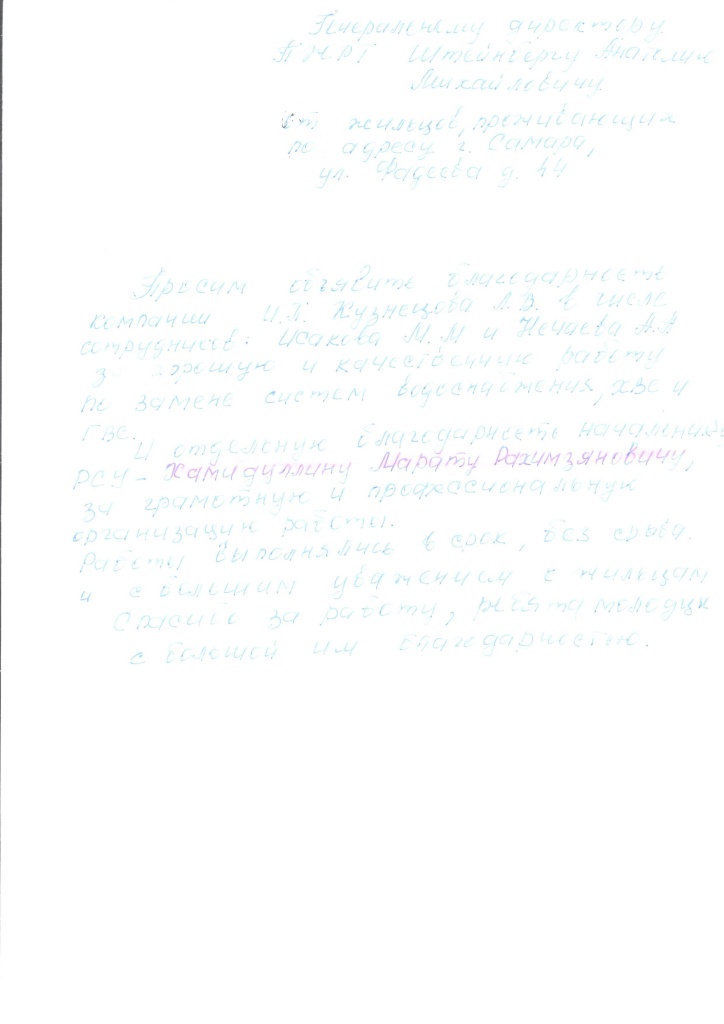 Генеральному директору
ПЖРТ Штейнбергу Анатолию
Михайловичу.
от жильцов, проживающих
по адресу г. Самара,
ул. Фадеева д. 44
Просим объявить благодарность
компании И.П. Кузнецова Л.В. в числе
сотрудников: Исакова М.М и Нечаева А.А
за хорошую и качественную работу
по замене систем водоснабжения, ХВС и
ГВС.
И отдельную благодарность начальнику
РСУ - Хамидуллину Марату Рахимзяновичу,
за грамотную и профессиональную
организацию работы.
Работы выполнялись в срок, без срыва.
и с большим уважением к жильцам
Спасибо за работу, ребята молодцы
с большой им благодарностью.